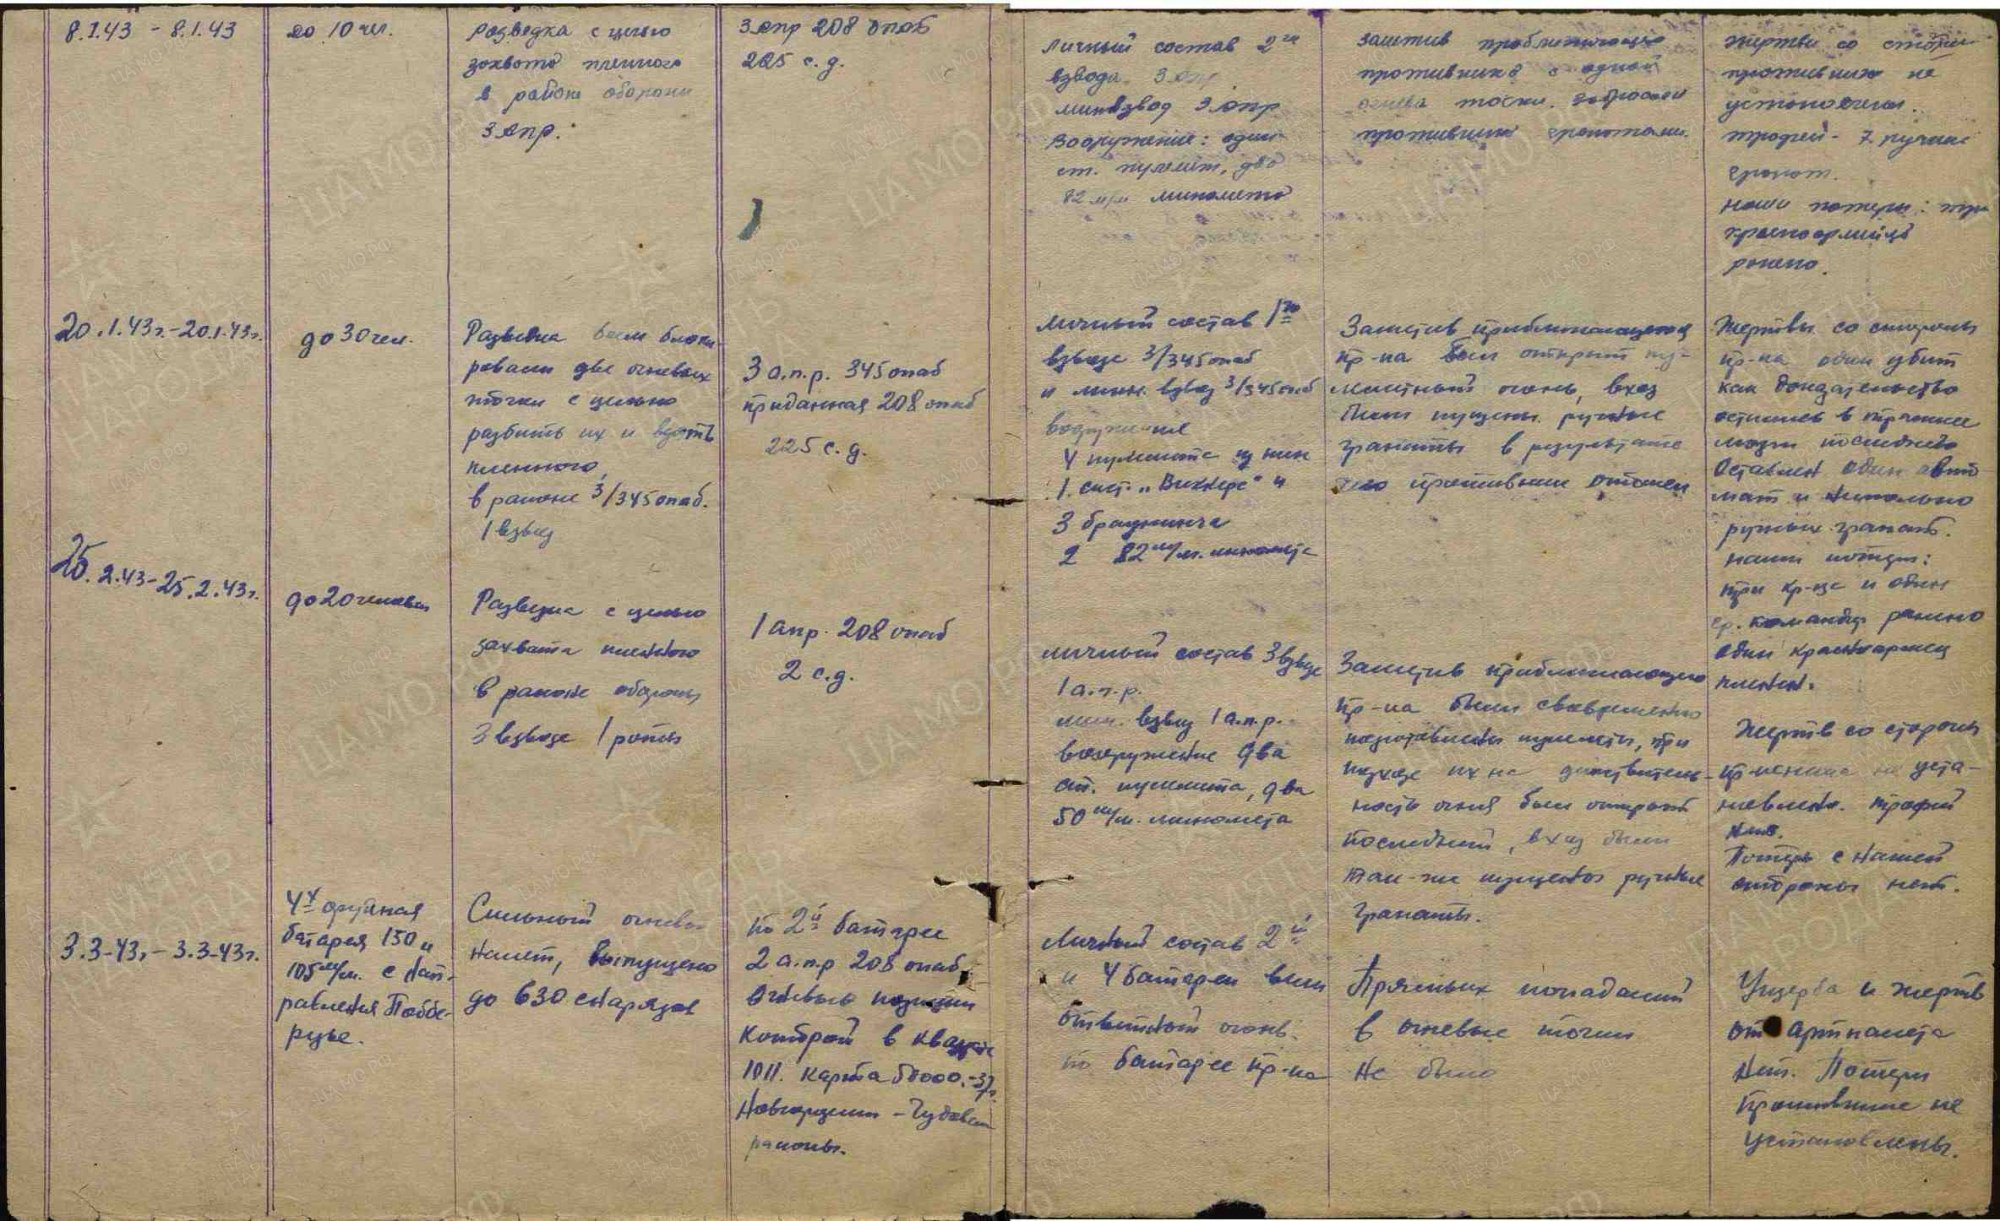 8.1.43 - 8.1.43
до 10 чел.
разведка с целью
захвата пленного
в районе обороны
3 апр.
3 апр 208 опаб
225 с.д.
Личный состав 2го
взвода 3 апр
минвзвод 3 апр
Вооружение: один
ст. пулемет, два
82 м/м миномета
Заметив приближающегося
противника с одной
огнева точки. забросали
противника гранатами.
жертвы со стороны
противника не
установлены.
трофеи - 7 ручных
гранат.
наши потери: три
красноармейца
ранено.
20.1.43г.-20.1.43г.
до 30 чел.
Разведка были блоки
ровали две огневых
точки с целью
разбить их и взять
пленного,
в районе 3/345 опаб.
1 взвод
3 а.п.р. 345 опаб
приданная 208 опаб
225 с.д.
Личный состав 1го
взвода 3/345 опаб
и мин. взвод 3/345 опаб
вооружение
4 пулемета из них
1. сист. "Виккерс" и
3 браунинга
2 82 м/м. миномета
Заметив приближающегося
пр-ка был открыт пу-
леметный огонь, в ход
были пущены ручные
гранаты в результате
чего противник отошел
Жертвы со стороны
пр-ка один убит
как доказательство
остались в траншее
мозги последнего
Оставлен один авто-
мат и несколько
ручных гранат.
наши потери:
три кр-ца и один
ср. командир ранено
один красноармеец
пленен.
25.2.43-25.2.43г.
до 20 человек
Разведка с целью
захвата пленного
в районе обороны
3 взвода 1 роты
1 апр. 208 опаб
2 с.д.
личный состав 3 взвода
1 а.п.р.
мин. взвод 1 а.п.р.
вооружение два
ст. пулемета, два
50 м/м. миномета
Заметив приближающегося
пр-ка были своевременно
подготовлены пулеметы, при
подходе их на действитель-
ность огня был открыт
последний, в ход были
так-же пущены ручные
гранаты.
Жертв со стороны
пр-тивника не уста-
новлено. трофей
нет.
Потерь с нашей
стороны нет.
3.3-43г. - 3.3-43г.
4х орудийная
батарея 150 и
105 м/м. с нап-
равления Поддбе-
резье.
Сильный огневой
налет, выпущено
до 630 снарядов
по 2й батарее
2 а.п.р 208 опаб
огневые позиции
которой в квадрате
1011. карта 50000.-37г.
Новгородский - Чудовский
районы.
Личный состав 2й
и 4 батареи вели
ответный огонь.
по батарее пр-ка
Прямых попаданий
в огневые точки
не было
Ущерба и жертв
от артналета
нет. Потери
Противника не
установлены.